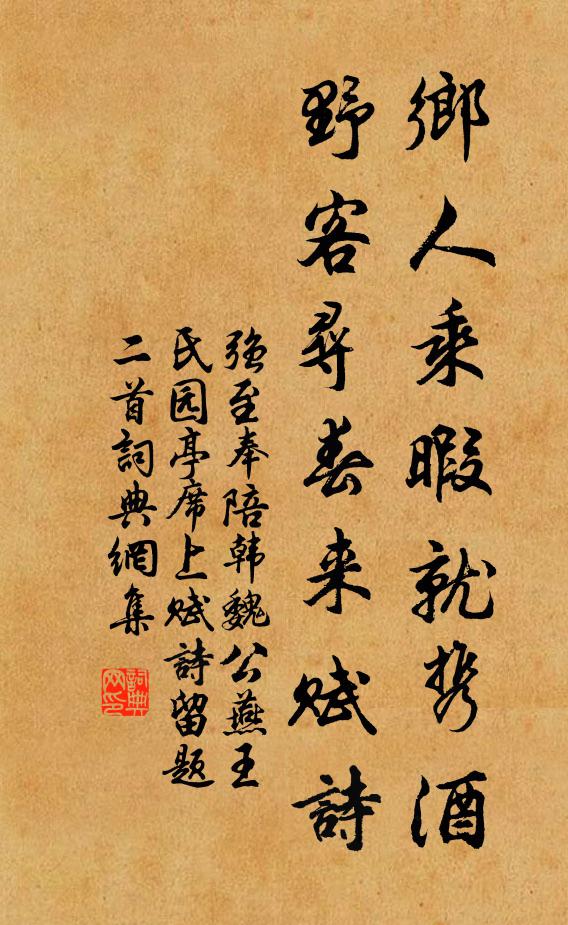 鄉人乘暇就攜酒
野客尋春來賦詩
強至奉陪韩魏公燕王
民园亭席上赋詩留题
二首詞典網集
詞典
网印